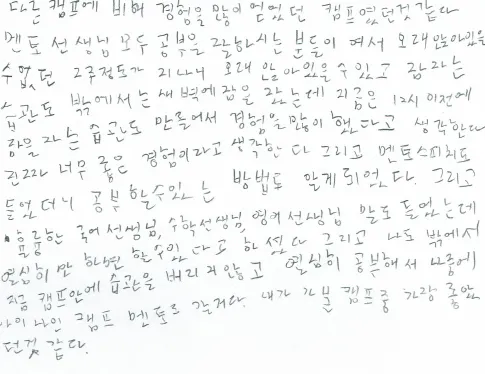 다른 캠프에 비해 경험을 많이 얻었던 캠프였던것 같다
멘토 선생님 모두 공부을 잘하시는 분들이 여서 오래앉아있을
수없던 2주정도가 지나니 오래 앉아있을수 있고 잠자는
습관도 밖에서는 새벽에 잠을 잤는데 지금은 12시 이전에
잠을 자는 습관도 만들어서 경험을많이 했다고 생각한다
진짜 너무 좋은 경험이라고 생각한다 그리고 멘토스피치도
들었더니 공부할수있는 방법도 알게되었다. 그리고
국어선생님, 수학선생님, 영어선생님 말도 들었는데
열심히만 하면 할수있다고 하셨다 그리고 나도 밖에서
지금 캠프안에 습관을 버리지않고 열심히 공부해서 나중에
캠프 멘토로 갈거다. 내가 가본 캠프중 가장 좋았
던것 같다.